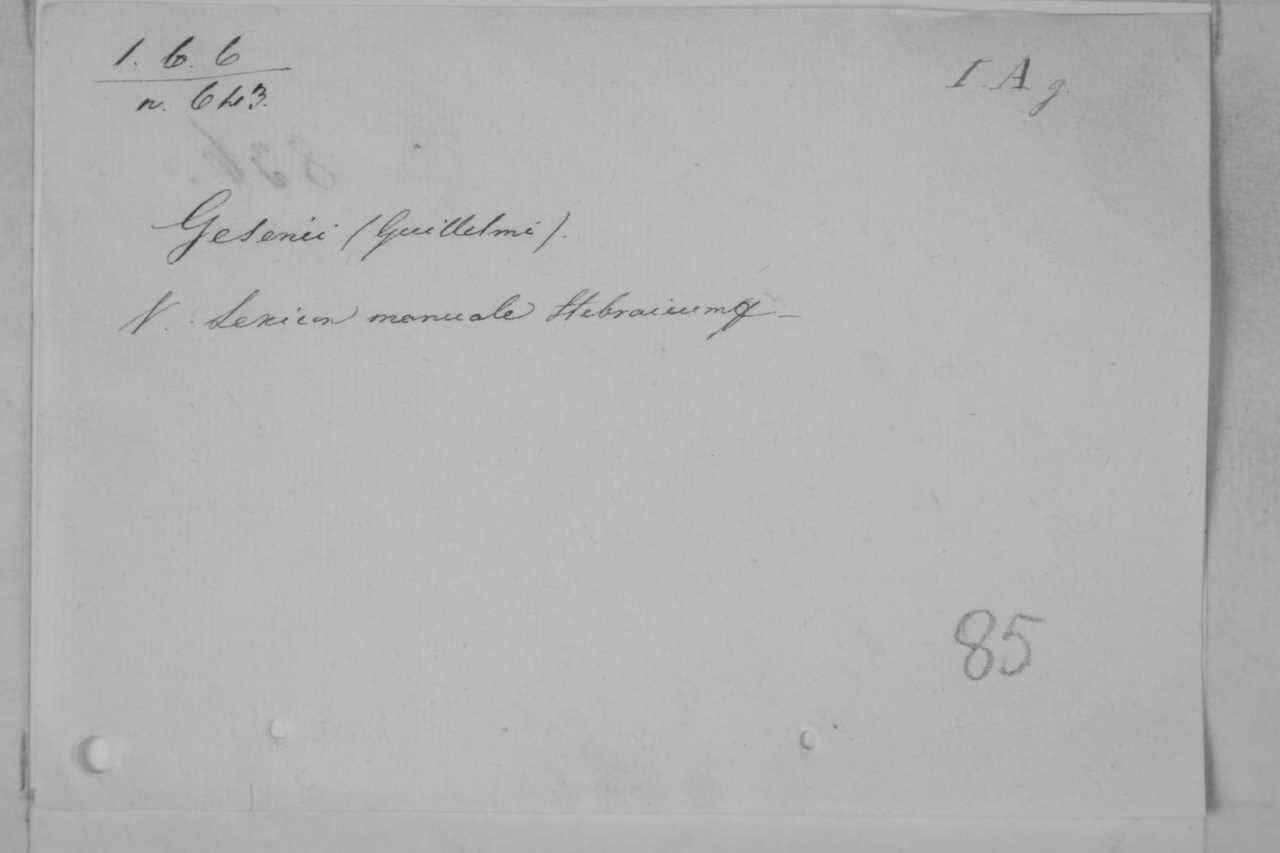 1. 6. 6
I. A g.
n. 643.
Gesenii (Guillelmi).
V. Lexicon manuale Hebraicum &_
85